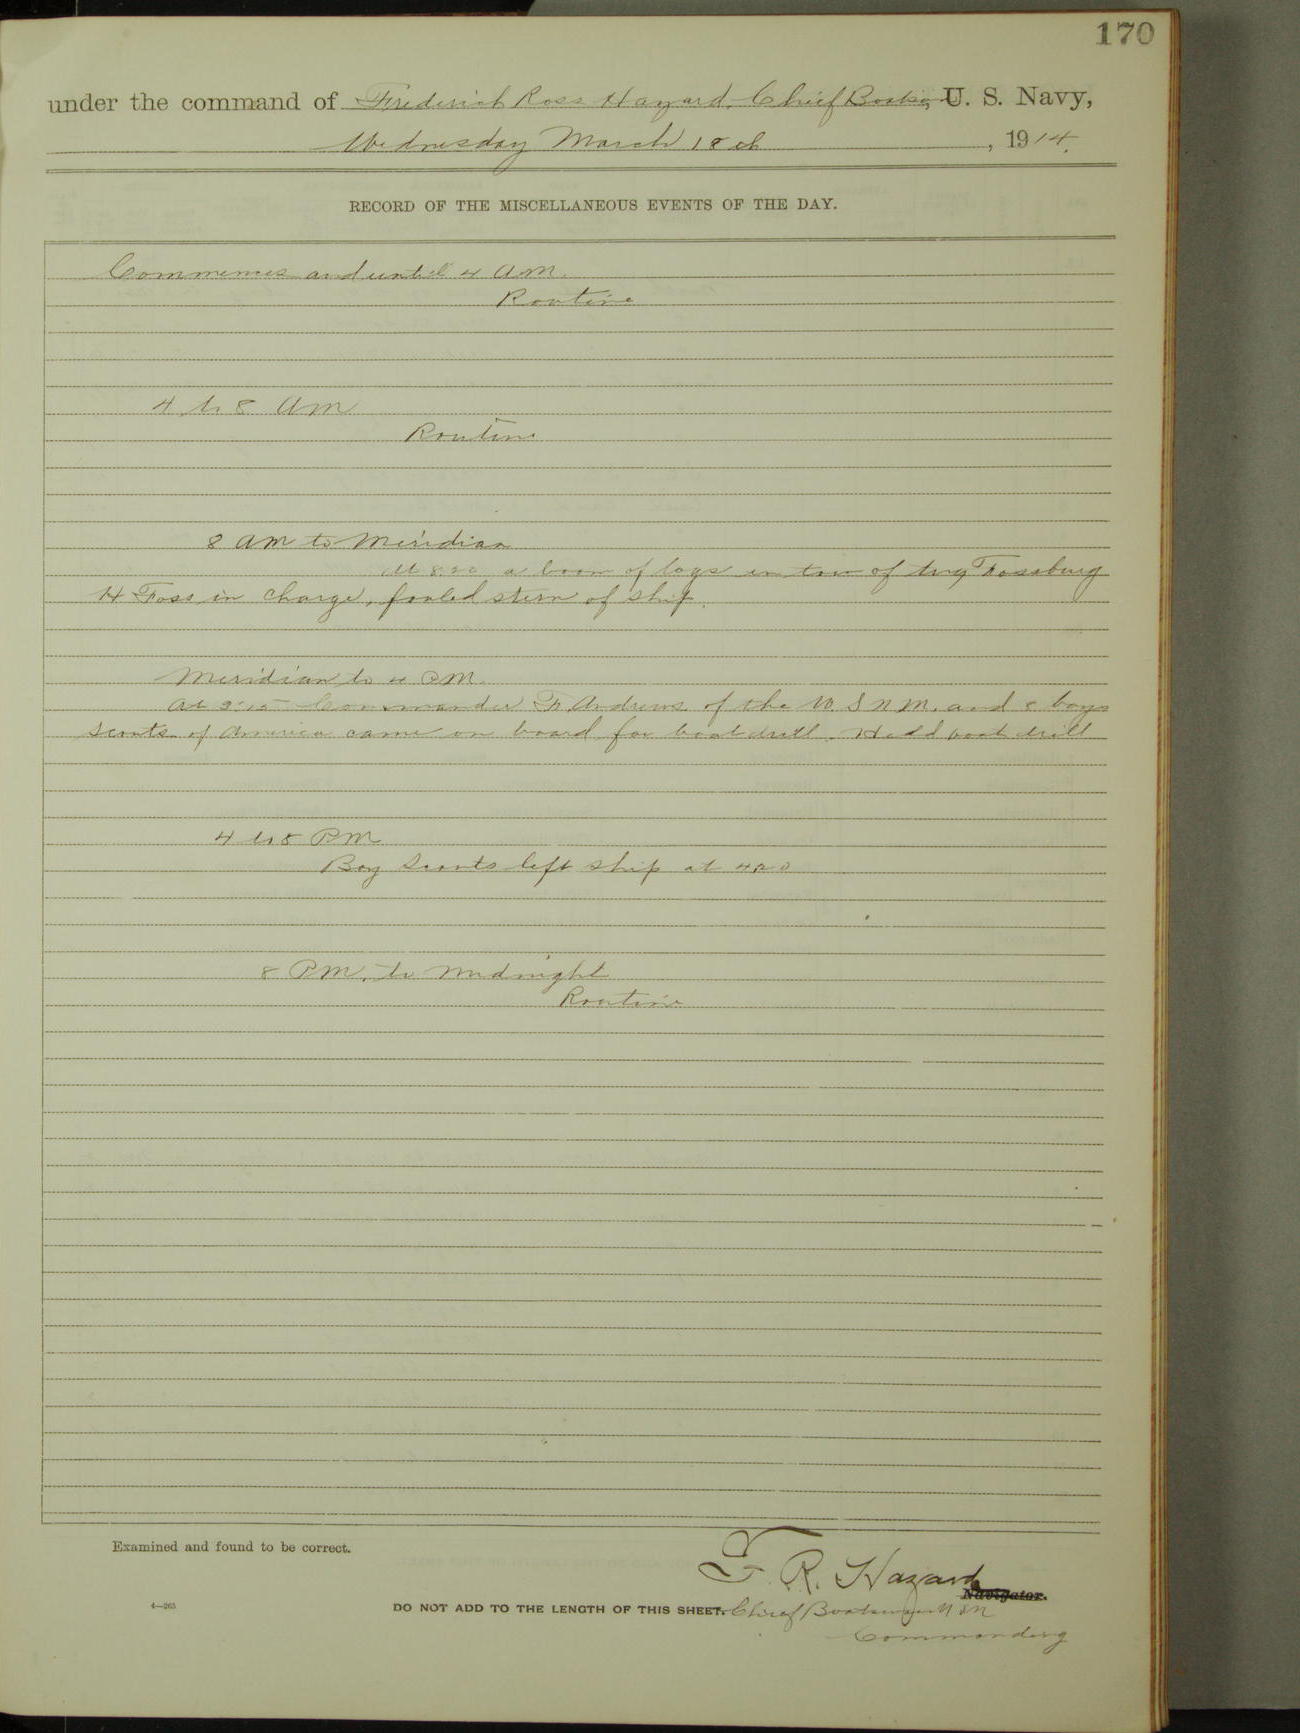 170
under the command of Frederick Ross Hazard, Chief Boatsn, U. S. Navy,
Wednesday March 18th, 1914.
RECORD OF THE MISCELLANEOUS EVENTS OF THE DAY.
Commences and until 4 A.M.
Routine
4 to 8 AM
Routine
8 AM to Meridian
At 8:20 a boom of logs in tow of tug Fossburg
H Foss in charge, fouled stern of ship.
Meridian to 4 P.M.
At Commander F. Andrews of the W. S N M. and 8 boys
scouts of America came on board for boat drill. Held boat drill
4 to 8 PM
Boy Scouts left ship at 420
8 PM. to Midnight
Routine
Examined and found to be correct.
F. R. Hazard
Navigator.
4—265
DO NOT ADD TO THE LENGTH OF THIS SHEET.
Chief Boatswain U S N
Commanding